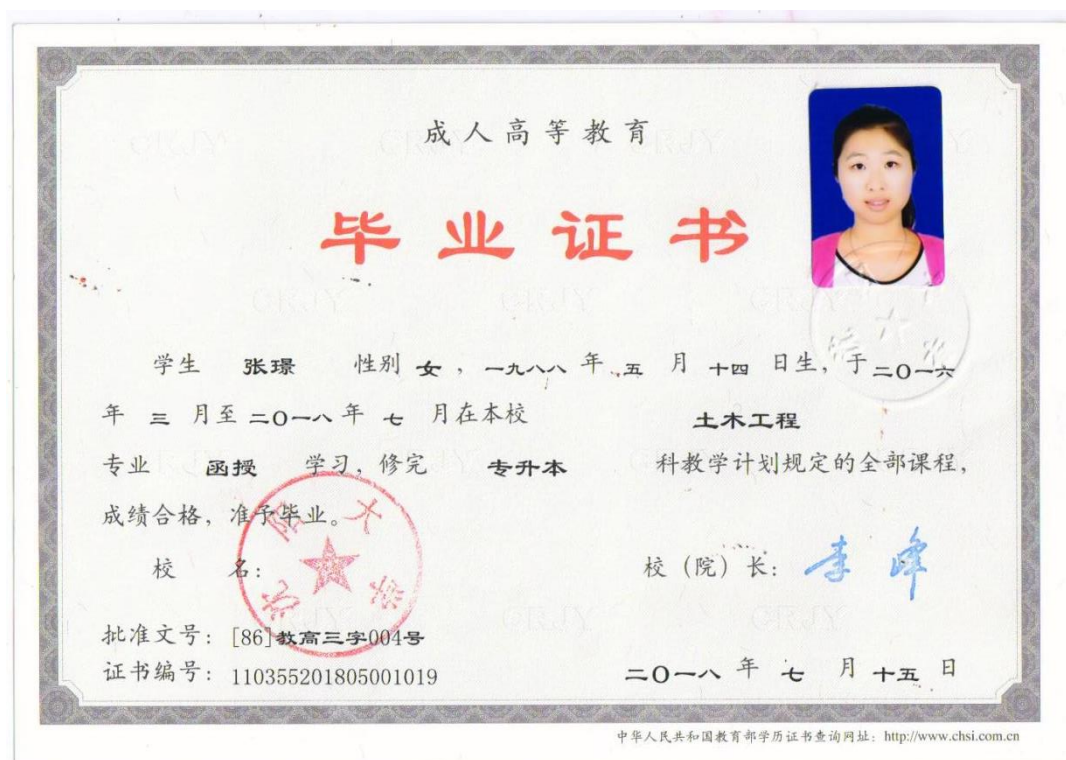 成人高等教育
毕业证书
学生 张璟 性别 女，一九八八 年 五 月 十四 日生，于 二〇一六
年 三 月至 二〇一八 年 七 月在本校 土木工程
专业 函授 学习，修完 专升本 科教学计划规定的全部课程，
成绩合格，准予毕业。
沈阳大学
校 名： 校（院）长：李峰
批准文号：[86]教高三字004号
证书编号：110355201805001019 二〇一八 年 七 月 十五 日
中华人民共和国教育部学历证书查询网址：http://www.chsi.com.cn